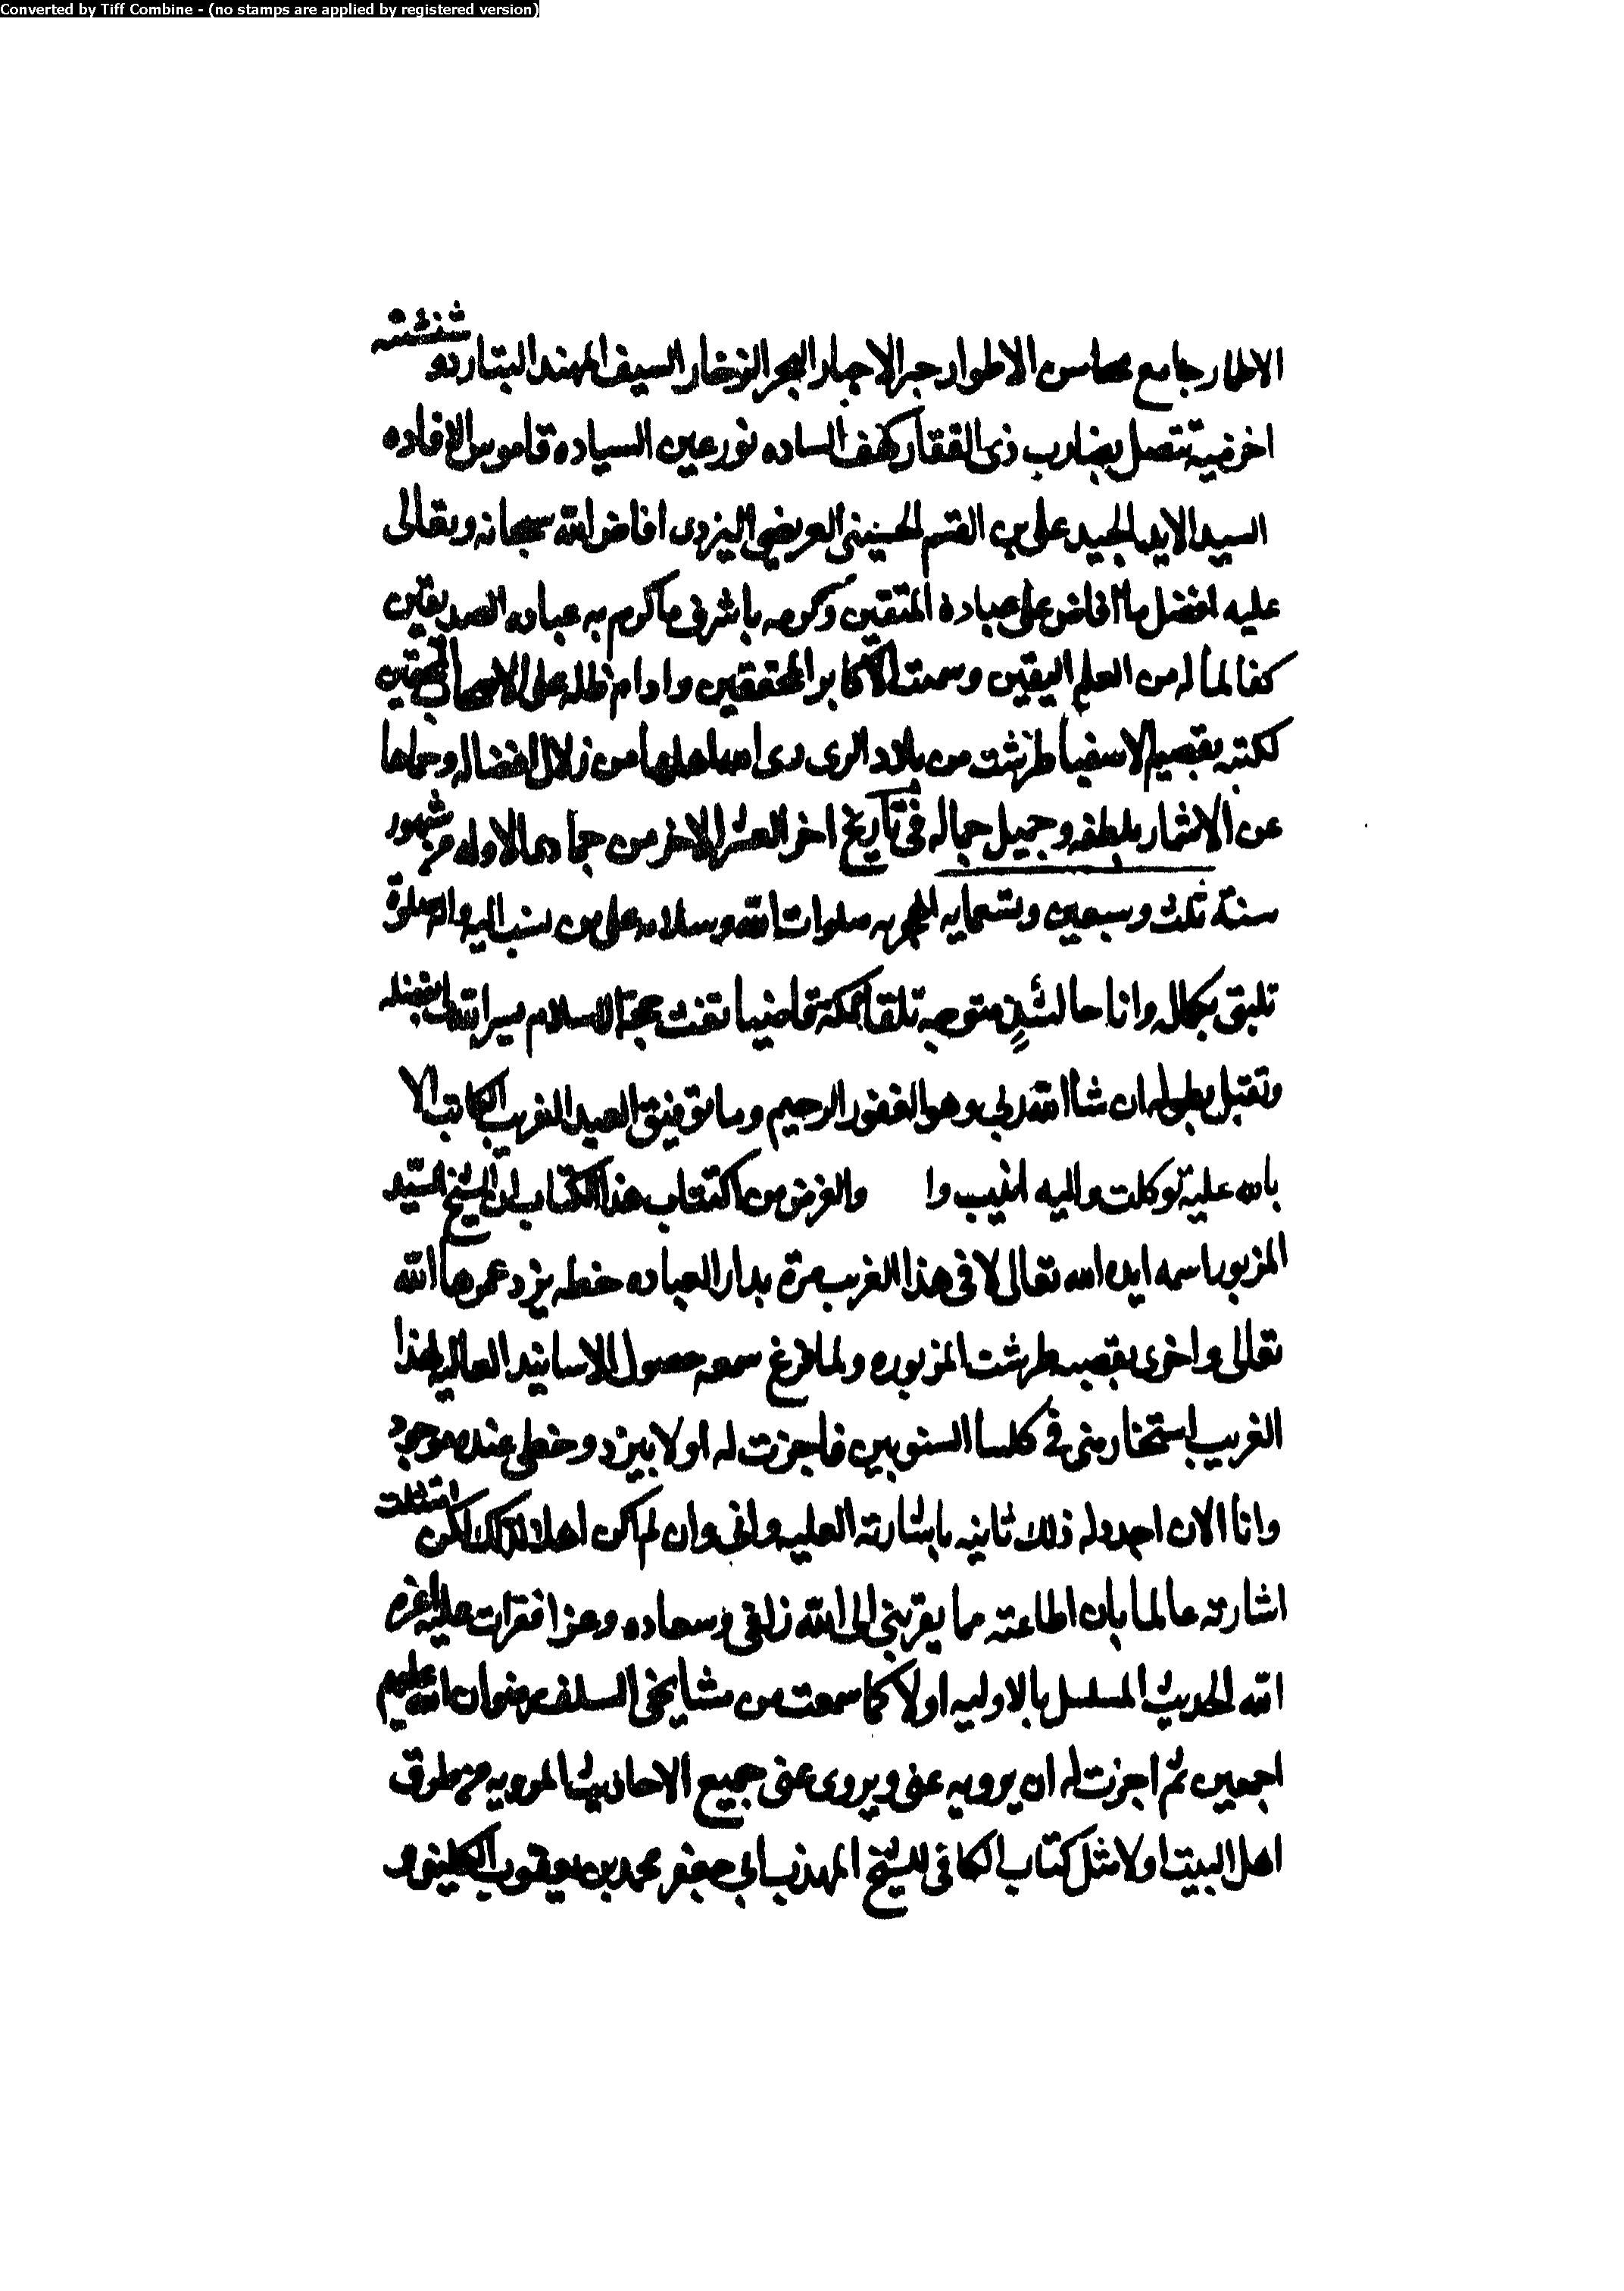 Converted by Tiff Combine - (no stamps are applied by registered version)
الاطهار جامع محاسن الاطوار حبر الاحبار البحر الزخار السيف المهند البتار ذو شنشنه
اخزميه تتصل بضارب ذى الفقار كهف الساده نور عين السياده قاموس الافاده
السيد الايد الجيد على بن القسم الحسينى العريضى اليزدى افاض الله سبحانه وتعالى
عليه افضل ما افاض على عباده المتقين وكرمه باشرف ما كرم به عباده الصديقين
كفا لما له من العلم اليقين وسمت الاكابر المحققين وادام ظله على الاصحاب
لكتبه بقصبه طرشت من بلاد الرى روى اهلها من زلال افضاله وحماها
عن الاشرار بلطفه وجميل جماله فى تاريخ اخر العشر الاخر من جمادى الاوله من شهور
سنة ثلث وسبعين وتسعمايه الهجريه صلوات الله وسلامه على من نسب اليه واله صلوة
تليق بكماله وانا حالتئذٍ متوجه تلقا مكة قاضيا تفث حجة الاسلام يسر الله بفضله
وتقبل بطوله ان شا الله ربى وهو الغفور الرحيم وما توفيق العبد الغريب الكاتب الا
بالله عليه توكلت واليه انيب وا والغرض من اكتتاب هذا الكتاب ان الشيخ السيد
المزبور اسمه ايده الله تعالى لاقى هذا الغريب مرة بدار العباده خطه يزد عمرها الله
تعالى واخرى بقصبه طرشت المزبوره ولما قرع سمعه حصول الاسانيد العاليه لهذا
الغريب استجار منى فى كلتا النوبتين فاجزت له اولا بيزد وخطى عنده موجود
وانا الان اجدد له ذلك ثانيه باشارته العليه وانى وان لم اكن اهلا لذلك لكن امتثلت
اشارته عالما بان اطاعته مما يقربنى الى الله زلفى وسعاده وعزا فقرات عليه اعزه
الله الحديث المسلسل بالاوليه اولا كما سمعت من مشايخى السلف رضوان الله عليهم
اجمعين ثم اجزت له ان يرويه عنى ويروى عنى جميع الاحاديث المرويه من طرق
اهل البيت اولا مثل كتاب الكافى للشيخ المهذب ابى جعفر محمد بن يعقوب الكلينى و